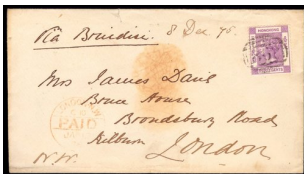 Via Brindisi. 8 Dec 75.
HONG KONG
Mrs James Davis
Bruce House
Brondesbury Road
Kilburn
London
N.W.
PAID